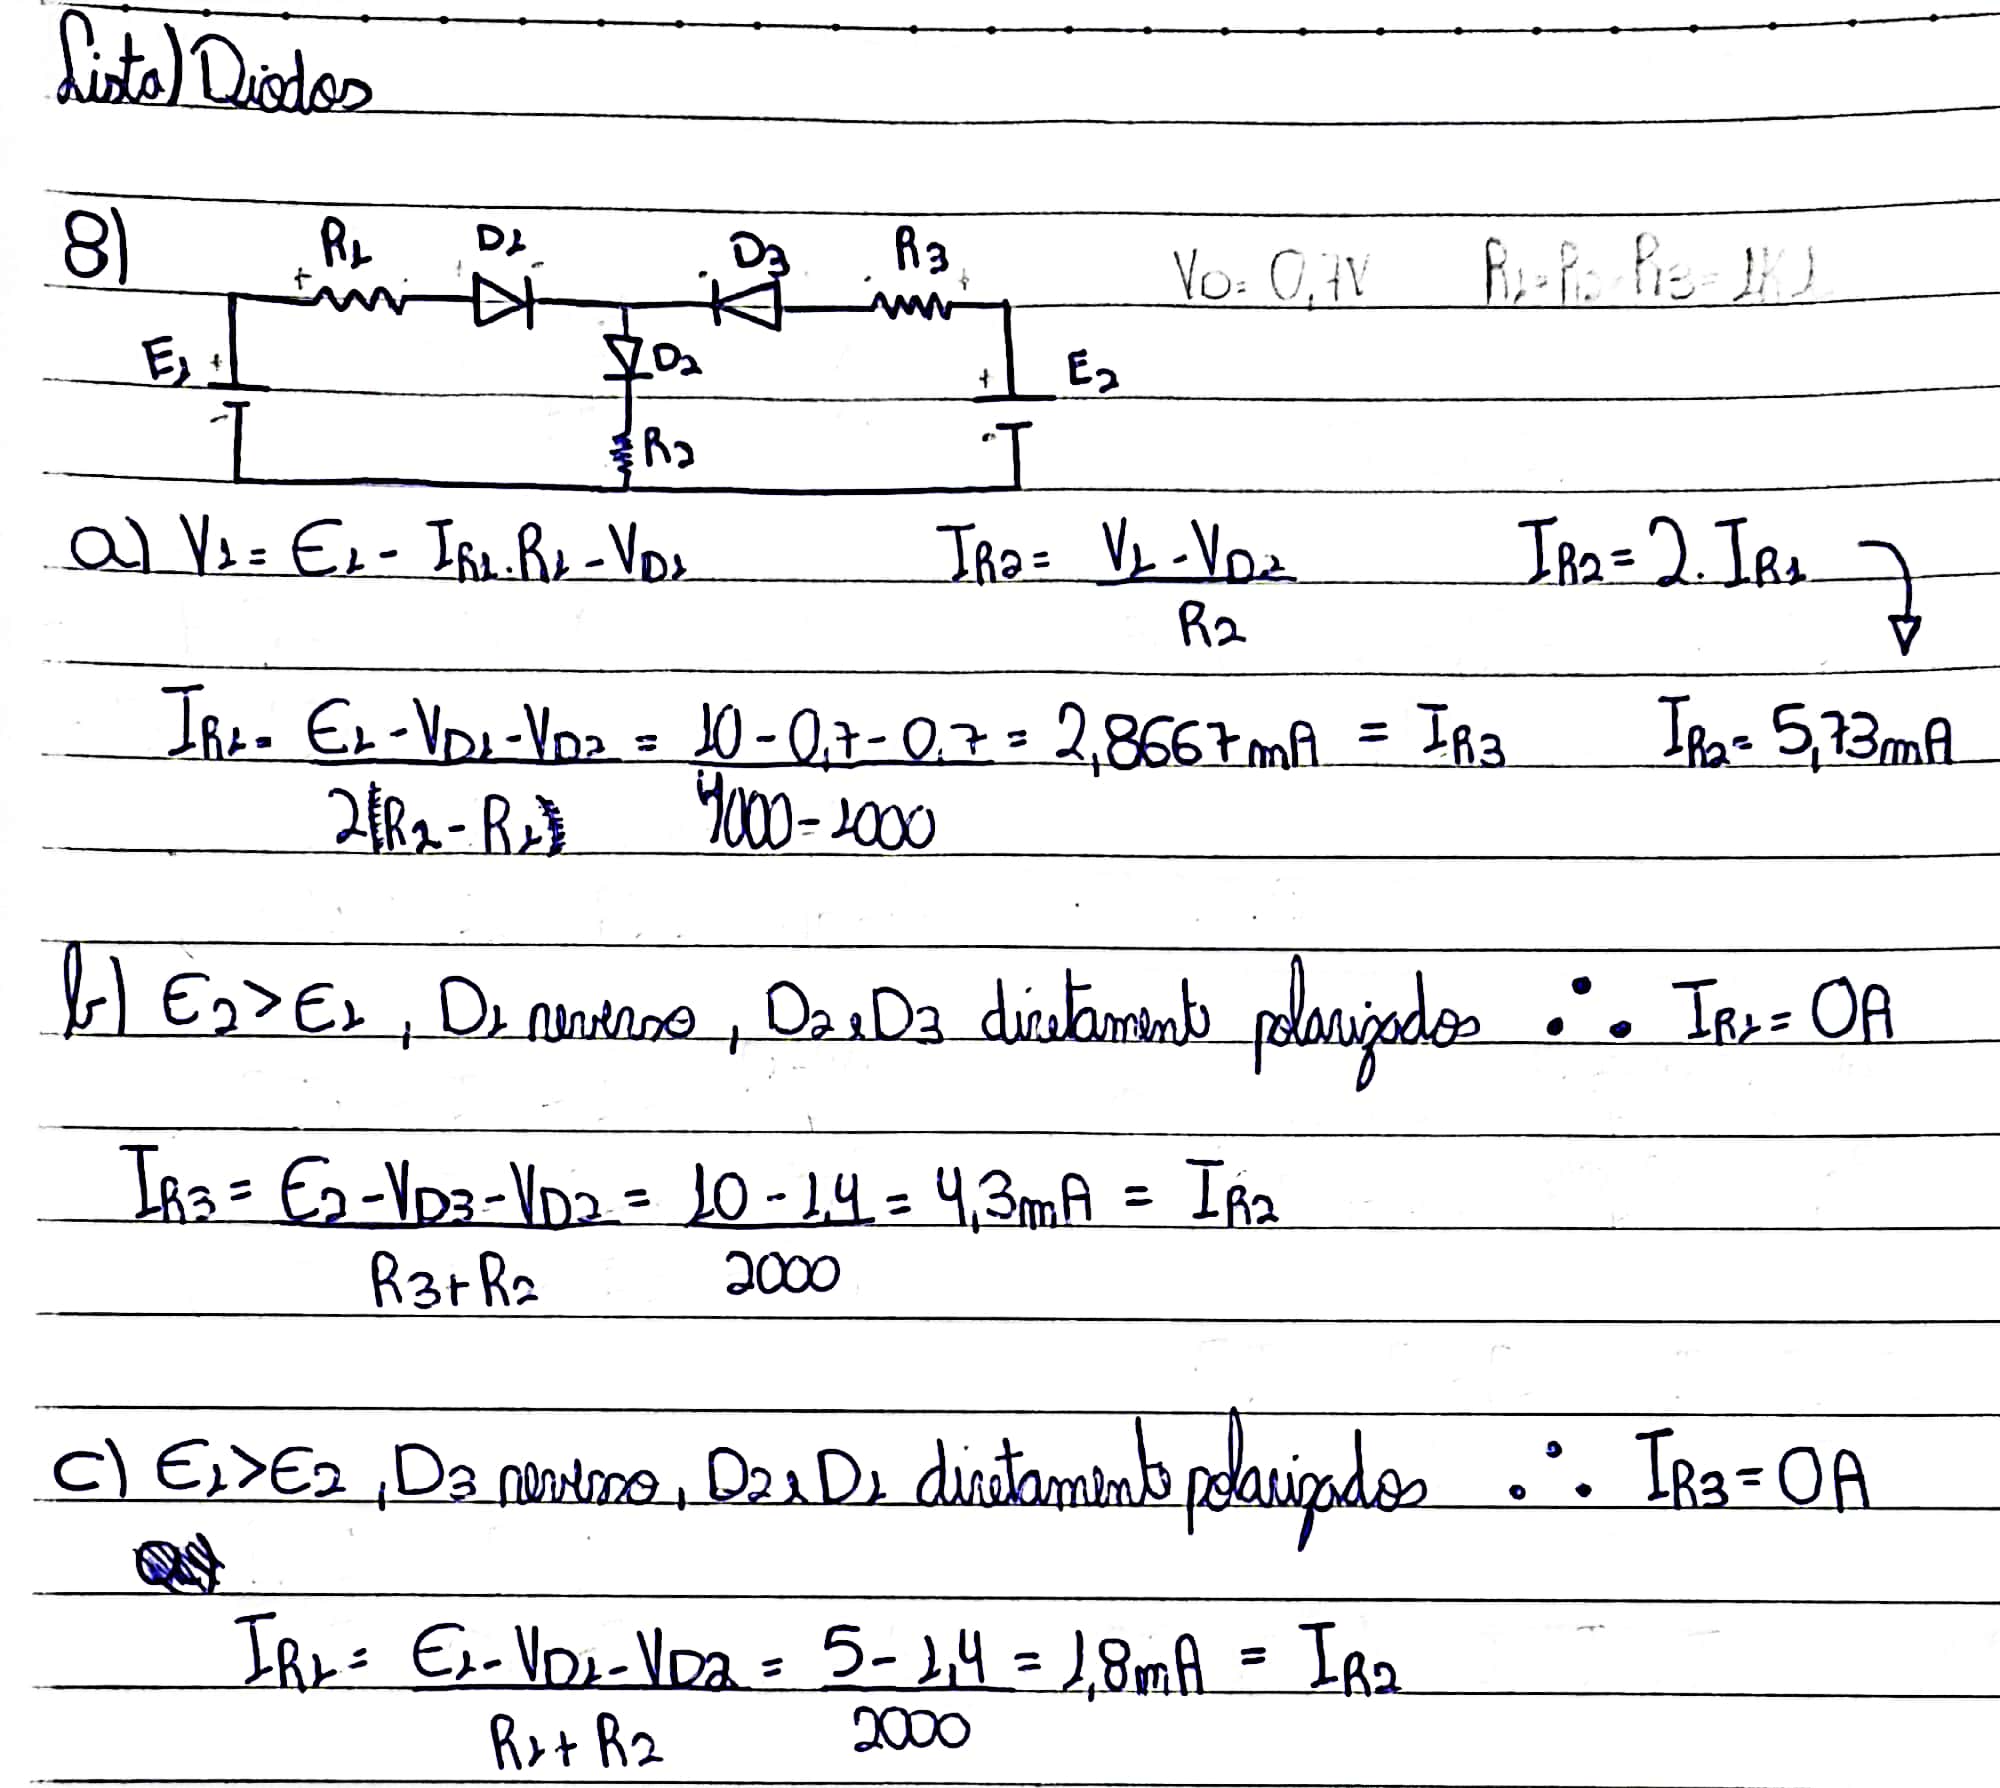 Lista) Diodos
8) R1 D1 D3 R3 VD= 0,7V R1=R2=R3=1K
E1 D2 E2
R2
a) V1= E1 - IR1.R1 - VD1 IR2= V1 - VD2 / R2 IR2= 2.IR1
IR1= E1 - VD1 - VD2 / 2R2 - R1 = 10 - 0,7 - 0,7 / 4000 - 1000 = 2,8667mA = IR3 IR2= 5,73mA
b) E2 > E1, D1 reverso, D2 e D3 diretamente polarizados ∴ IR1= 0A
IR3= E2 - VD3 - VD2 / R3 + R2 = 10 - 1,4 / 2000 = 4,3mA = IR2
c) E1 > E2, D3 reverso, D2 e D1 diretamente polarizados ∴ IR3= 0A
IR1= E1 - VD1 - VD2 / R1 + R2 = 5 - 1,4 / 2000 = 1,8mA = IR2